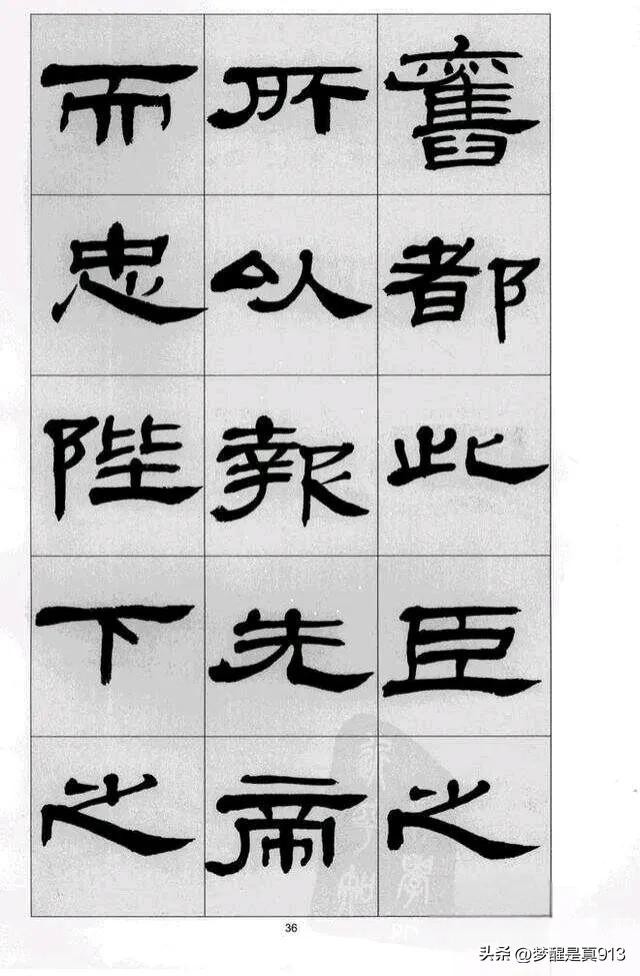 舊都此臣之
所以報先帝
而忠陛下之
36
头条 @梦醒是真913